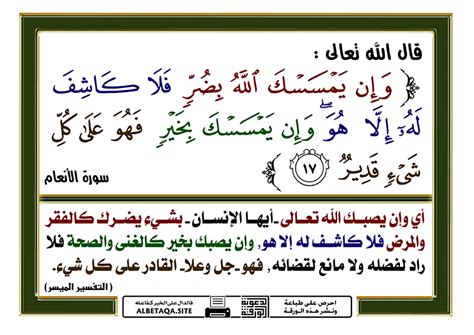 قال الله تعالى :
﴿ وَإِن يَمْسَسْكَ ٱللَّهُ بِضُرٍّ فَلَا كَاشِفَ
لَهُۥٓ إِلَّا هُوَ ۖ وَإِن يَمْسَسْكَ بِخَيْرٍ فَهُوَ عَلَىٰ كُلِّ
شَىْءٍ قَدِيرٌ ١٧ ﴾ سورة الأنعام
أي وإن يصبك الله تعالى -أيها الإنسان- بشيء يضرك كالفقر
والمرض فلا كاشف له إلا هو, وإن يصبك بخير كالغنى والصحة فلا
راد لفضله ولا مانع لقضائه, فهو -جل وعلا- القادر على كل شيء.
( التفسير الميسر )
احرص على طباعة
ونشر هذه الورقة
الدعوية
الورقة
فالدال على الخير كفاعله
ALBETAQA.SITE